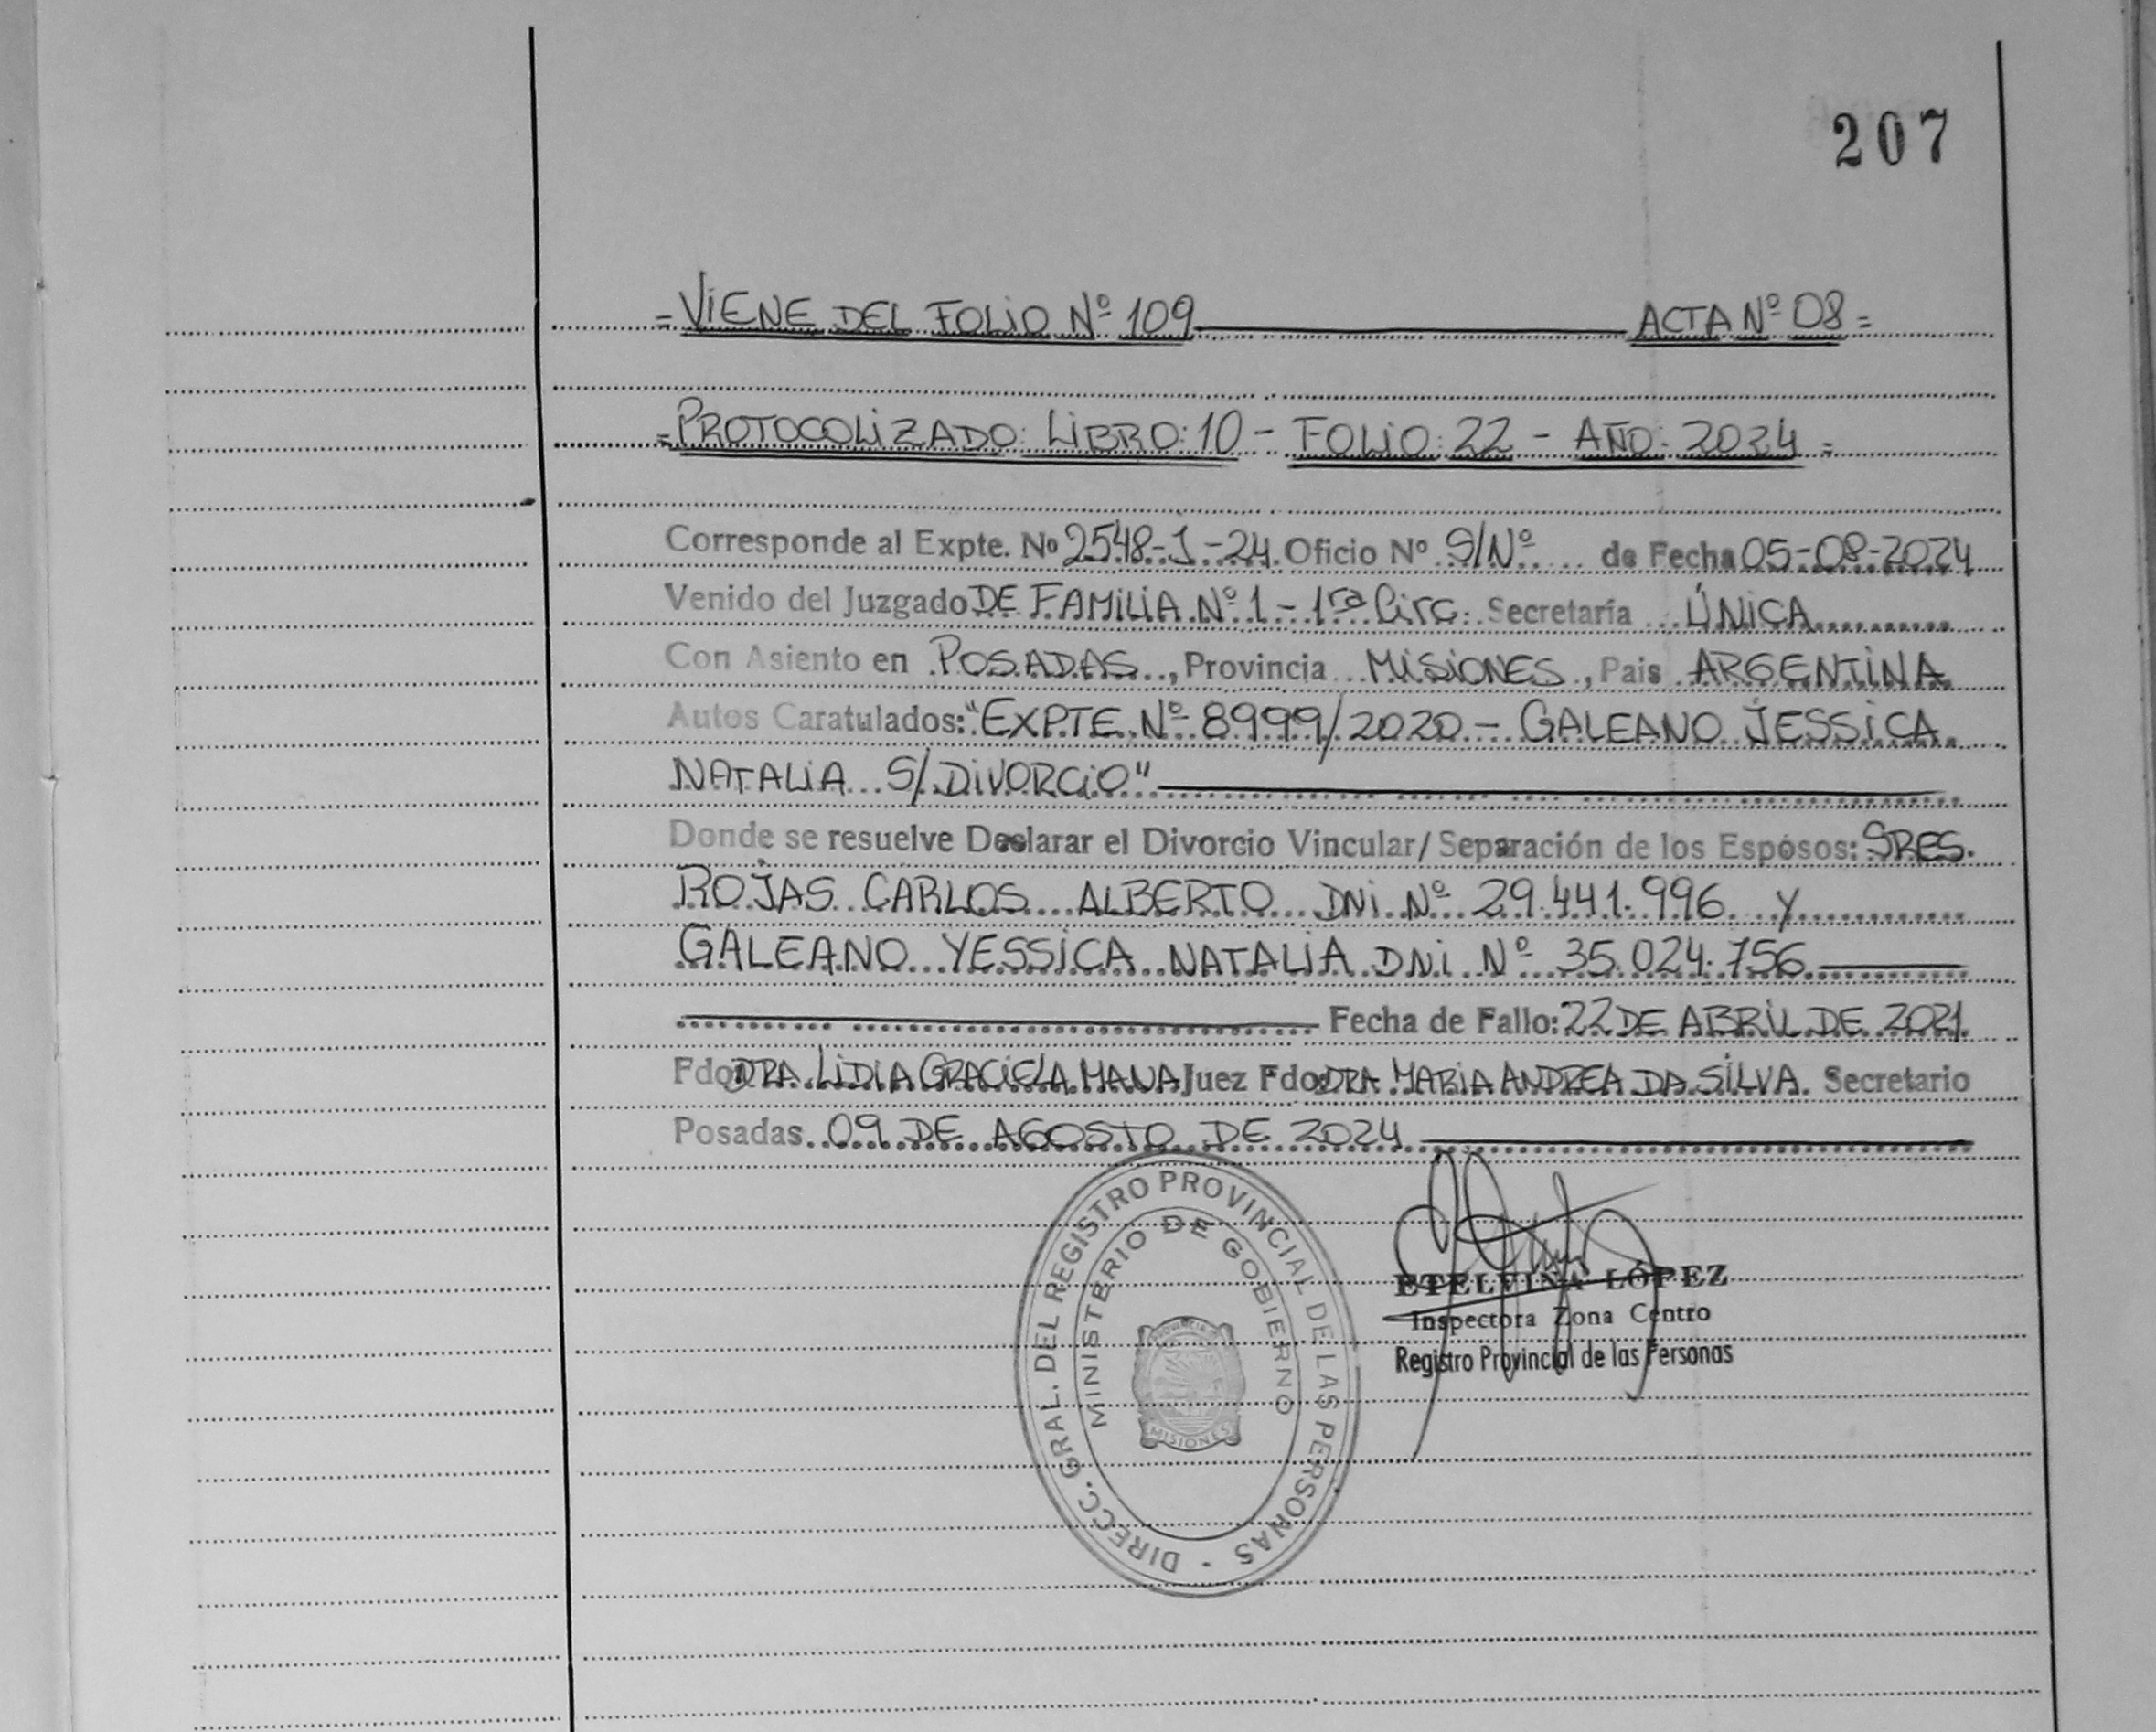 207
=VIENE DEL FOLIO Nº 109 ACTA Nº 08=
=PROTOCOLIZADO: LIBRO: 10 - FOLIO: 22 - AÑO: 2024=
Corresponde al Expte. Nº 2548-J-24 Oficio Nº S/Nº de Fecha 05-08-2024
Venido del Juzgado DE FAMILIA Nº 1 - 1ra Circ. Secretaría ÚNICA
Con Asiento en POSADAS, Provincia MISIONES, Pais ARGENTINA
Autos Caratulados: "EXPTE Nº 8999/2020 - GALEANO JESSICA
NATALIA S/ DIVORCIO"
Donde se resuelve Declarar el Divorcio Vincular/ Separación de los Esposos: SRES.
ROJAS CARLOS ALBERTO DNI Nº 29.441.996 Y
GALEANO YESSICA NATALIA DNI Nº 35.024.756
Fecha de Fallo: 22 DE ABRIL DE 2021
Fdo: DRA. LIDIA GRACIELA Juez Fdo: DRA MARIA ANDREA DA SILVA. Secretario
Posadas 09 DE AGOSTO DE 2024
DIRECC. GRAL. DEL REGISTRO PROVINCIAL DE LAS PERSONAS -
MINISTERIO DE GOBIERNO
MISIONES
ETELVINA LÓPEZ
Inspectora Zona Centro
Registro Provincial de las Personas